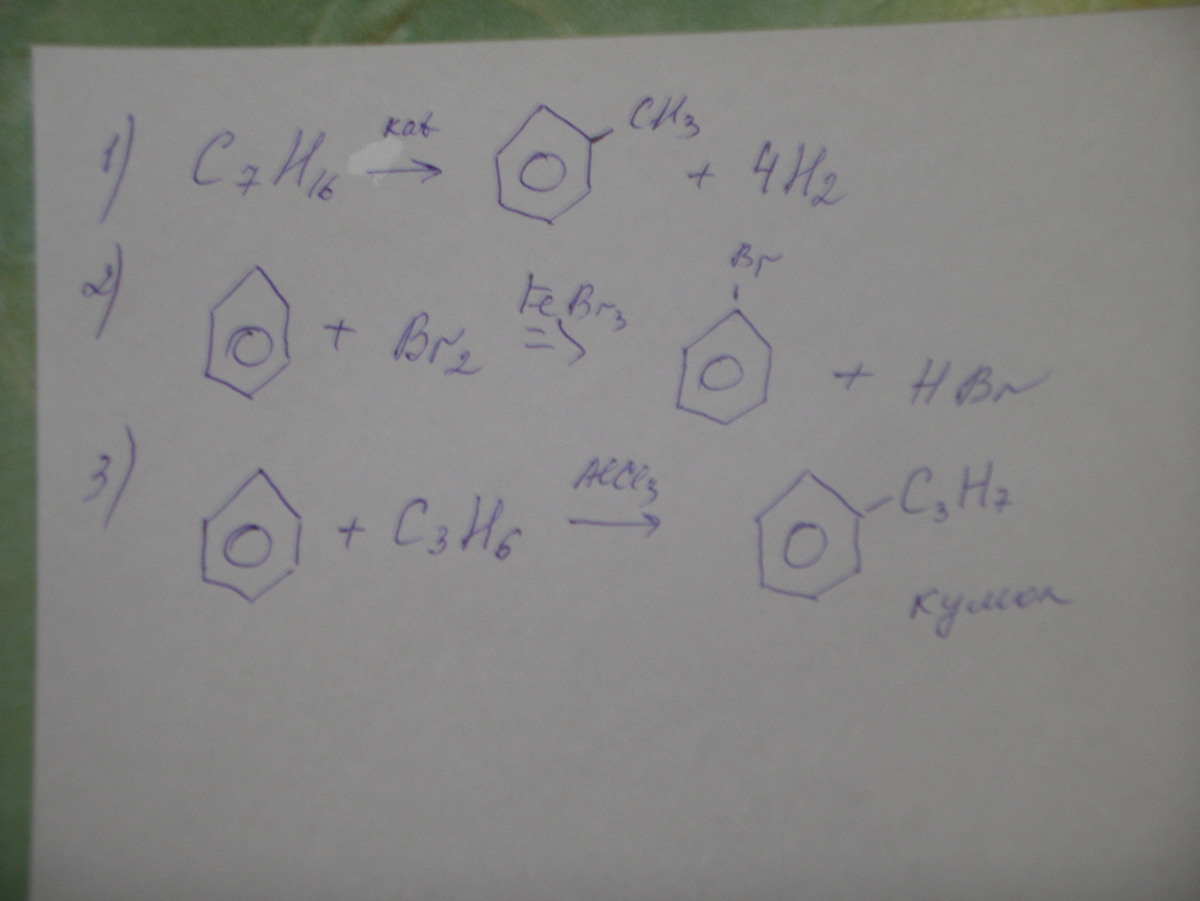 1) C7H16 кат → CH3 + 4H2
2) + Br2 FeBr3 => Br + HBr
3) + C3H6 AlCl3 → C3H7
кумол